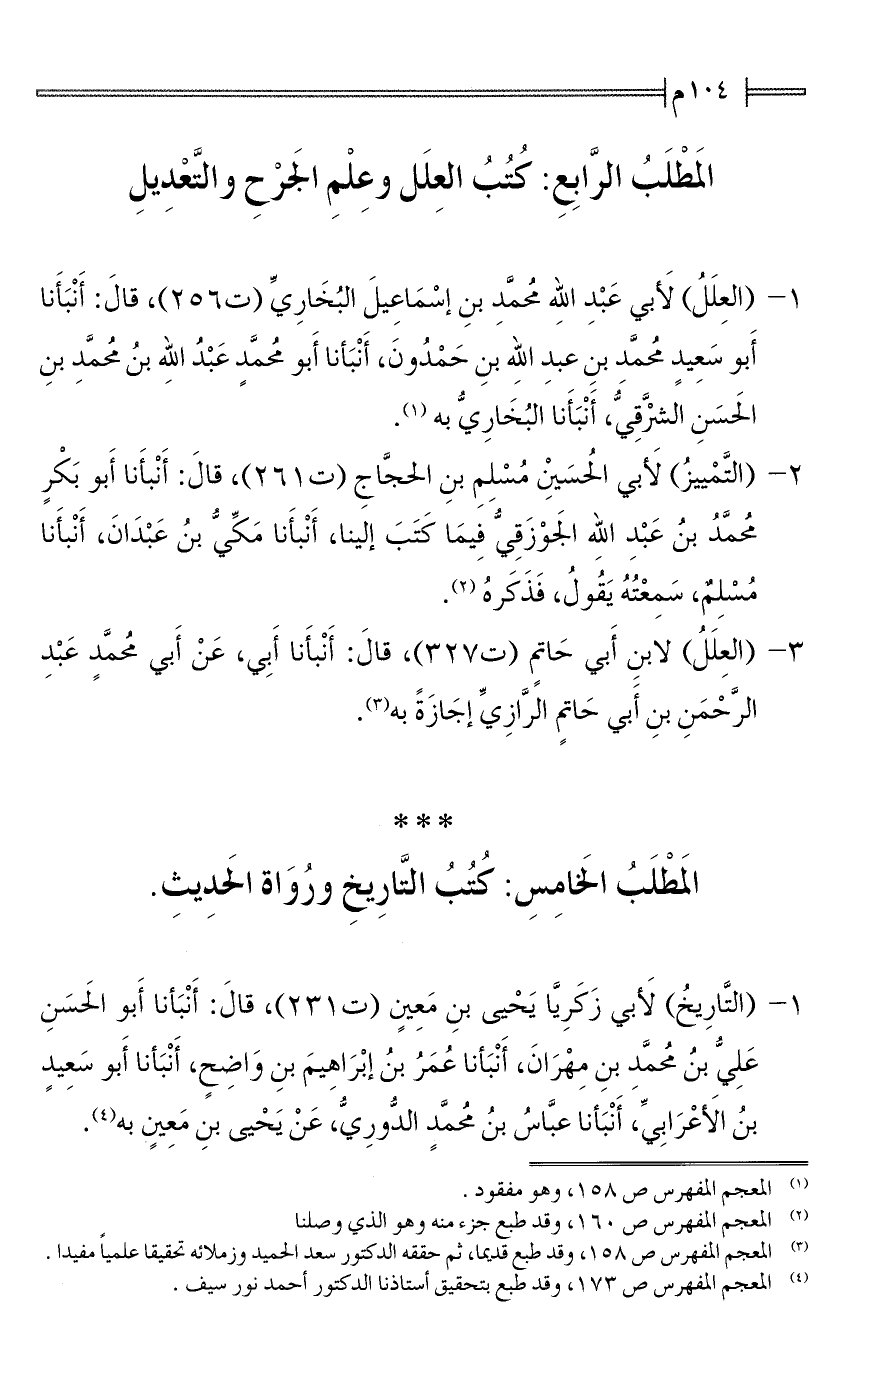 ١٠٤م
المَطْلَبُ الرَّابِعِ: كُتُبُ العِلَل وعِلْمِ الجَرْحِ والتَّعْدِيلِ
١- (العِلَلُ) لَأبي عَبْدِ الله مُحمَّدِ بنِ إسْمَاعِيلَ البُخَاريِّ (ت٢٥٦)، قالَ: أَنْبَأنا
أبو سَعِيدٍ مُحمَّدِ بنِ عبدِ اللهِ بنِ حَمْدُونَ، أَنْبَأنا أبو مُحمَّدٍ عَبْدُ اللهِ بنُ مُحمَّدِ بنِ
الحَسَنِ الشرَّقِيُّ، أَنْبَأنا البُخَاريُّ به (١).
٢- (التَّمْييزُ) لَأبي الحُسَينْ مُسْلِمِ بنِ الحجَّاجِ (ت٢٦١)، قالَ: أَنْبَأنا أبو بَكْرٍ
مُحمَّدُ بنُ عَبْدِ اللهِ الجَوْزَقِيُّ فِيمَا كَتَبَ إلينا، أَنْبَأنا مَكِّيُّ بنُ عَبْدَانَ، أَنْبَأنا
مُسْلِمٌ، سَمِعْتُهُ يَقُولُ، فَذَكَرهُ (٢).
٣- (العِلَلُ) لابنِ أبي حَاتمٍ (ت٣٢٧)، قالَ: أَنْبَأنا أبِي، عَنْ أَبي مُحمَّدٍ عَبْدِ
الرَّحْمَنِ بنِ أَبي حَاتمٍ الرَّازِيِّ إجَازَةً به(٣).
***
المَطْلَبُ الخَامِسِ: كُتُبُ التَّارِيخِ ورُوَاة الحَدِيثِ.
١- (التَّارِيخُ) لَأبي زَكَريَّا يَحْيى بنِ مَعِينٍ (ت٢٣١)، قالَ: أَنْبَأنا أَبو الحَسَنِ
عَليُّ بنُ مُحمَّدِ بنِ مِهْرَانَ، أَنْبَأنا عُمَرُ بنُ إبْرَاهِيمَ بنِ وَاضِحٍ، أَنْبَأنا أَبو سَعِيدٍ
بنُ الأَعْرَابيِّ، أَنْبَأنا عبَّاسُ بنُ مُحمَّدٍ الدُّورِيُّ، عَنْ يَحْيى بنِ مَعِينٍ به(٤).
(١) المعجم المفهرس ص ١٥٨، وهو مفقود .
(٢) المعجم المفهرس ص ١٦٠، وقد طبع جزء منه وهو الذي وصلنا
(٣) المعجم المفهرس ص ١٥٨، وقد طبع قديما، ثم حققه الدكتور سعد الحميد وزملائه تحقيقا علمياً مفيدا .
(٤) المعجم المفهرس ص ١٧٣، وقد طبع بتحقيق أستاذنا الدكتور أحمد نور سيف .